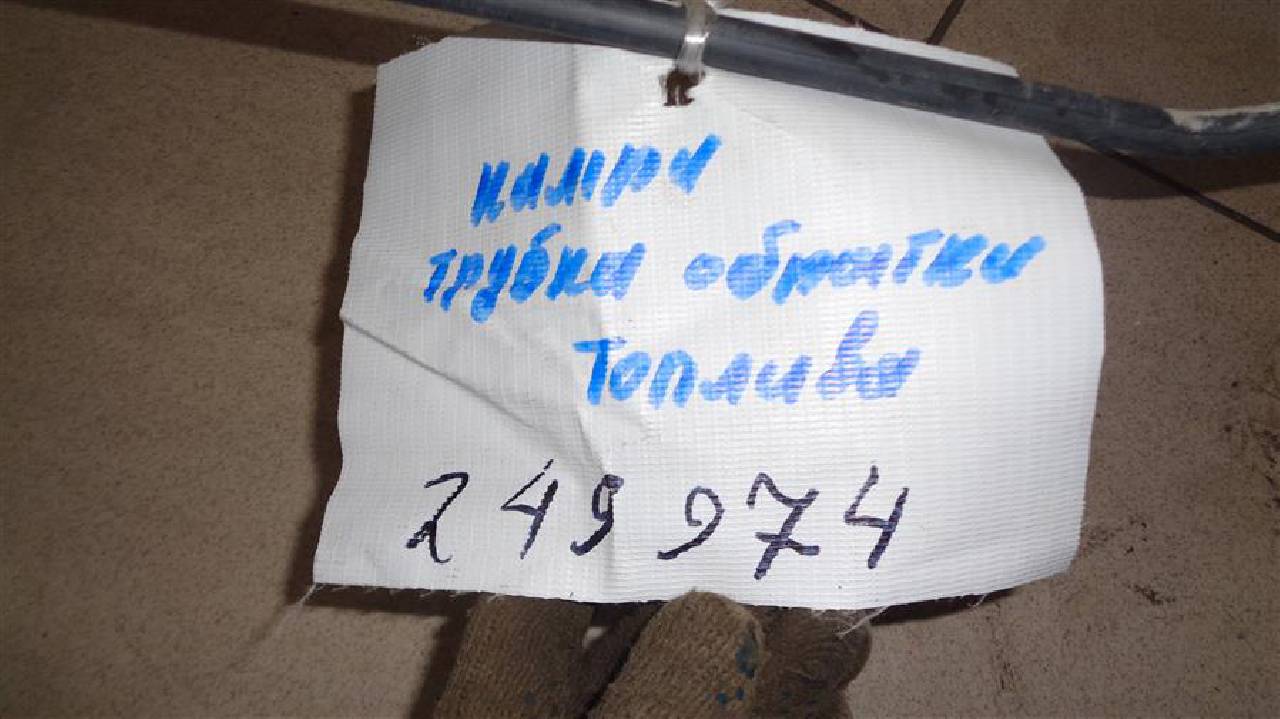 камри
трубка обратки
топлива
249974